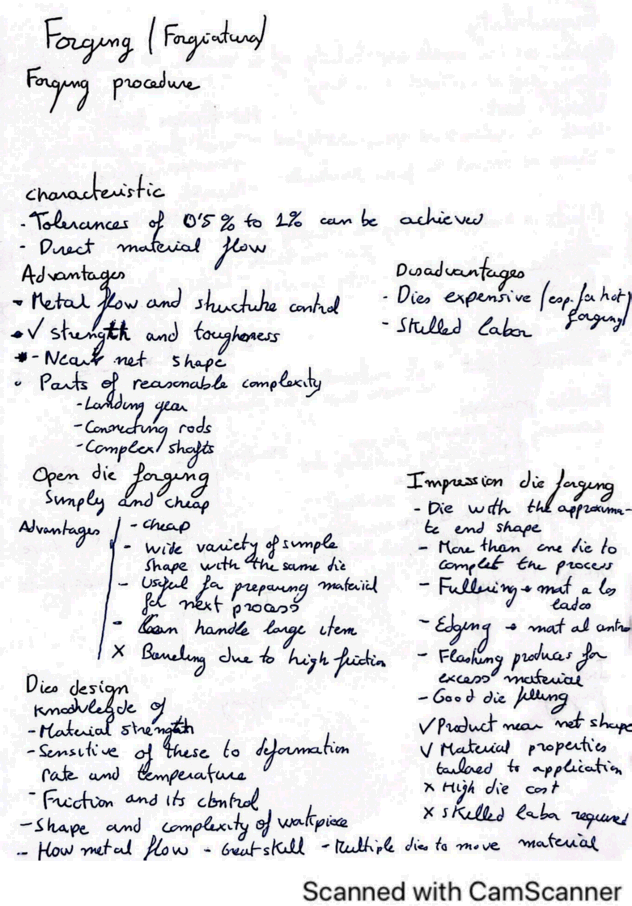 Forging (Forgiatura)
Forging procedure
characteristic
- Tolerances of 0'5 % to 1% can be achieved
- Direct material flow
Advantages
- Metal flow and structure control
- √ strength and toughness
- Near net shape
• Parts of reasonable complexity
- Landing gear
- Connecting rods
- Complex shafts
Disadvantages
- Dies expensive (esp. for hot
forging)
- Skilled labor
Open die forging
Simply and cheap
Advantages
- cheap
- wide variety of simple
shape with the same die
- Useful for preparing material
for next process
- Can handle large item
X Barreling due to high friction
Dies design
Knowledge of
- Material strength
- Sensitive of these to deformation
rate and temperature
- Friction and its control
- Shape and complexity of workpiece
- How metal flow - Great skill - Multiple dies to move material
Impression die forging
- Die with the approxima-
te end shape
- More than one die to
complet the process
- Fullering → mat a los
lados
- Edging → mat al
- Flashing produces for
excess material
- Good die filling
√ Product near net shape
√ Material properties
tailored to application
x High die cost
x skilled labor required
Scanned with CamScanner